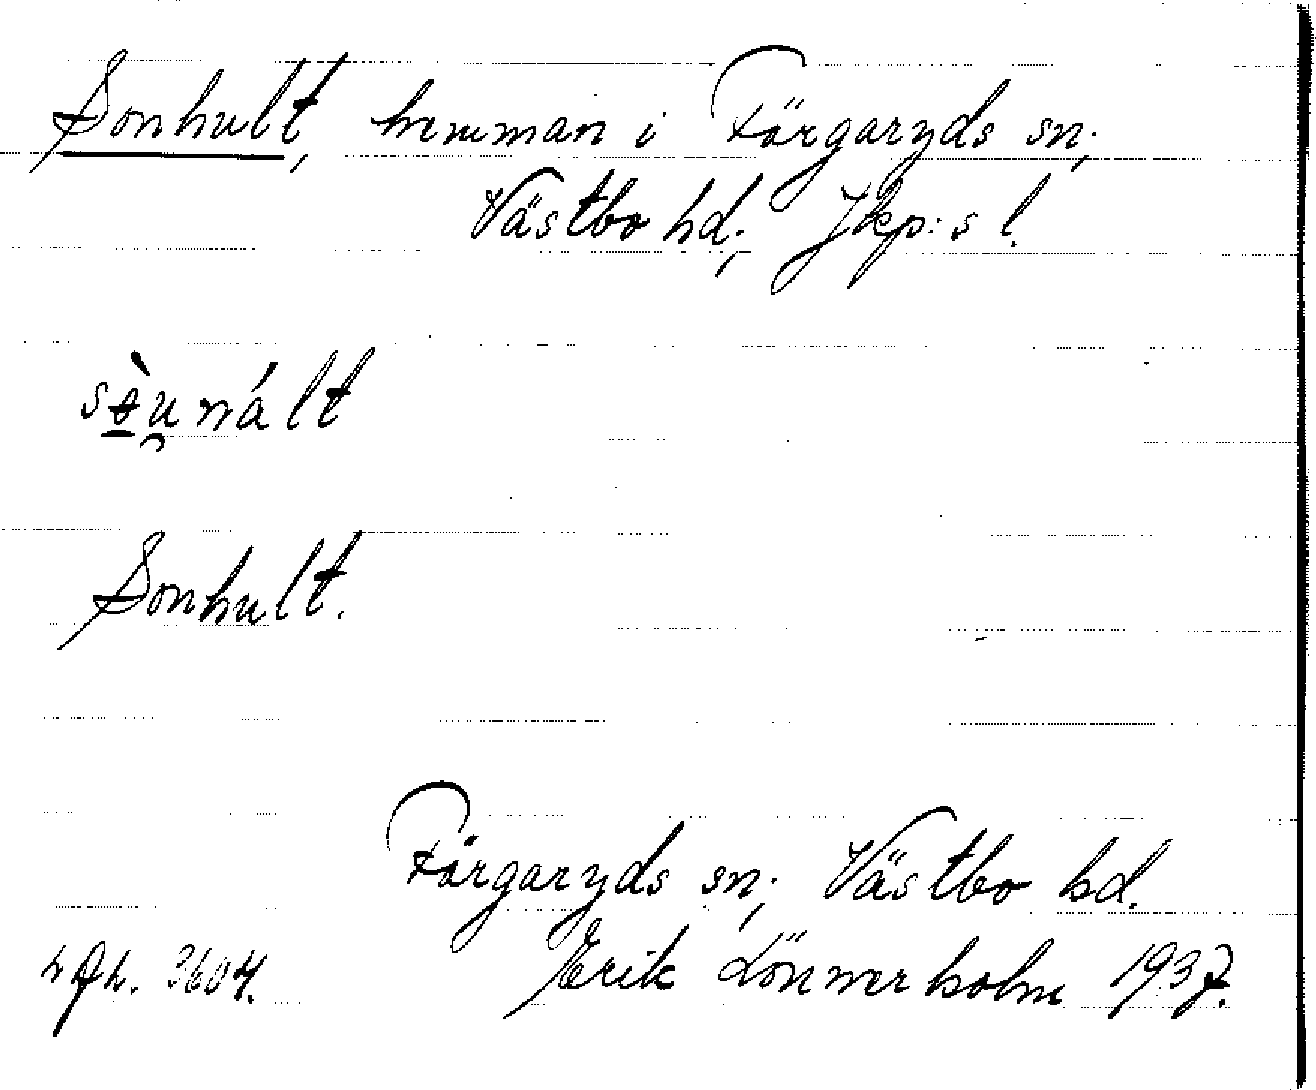 Sonhult, hemman i Färgaryds sn.,
Västbo hd., Jkp:s l.
Sonhult.
Färgaryds sn., Västbo hd.
3604. Erik Lönnerholm 1937.